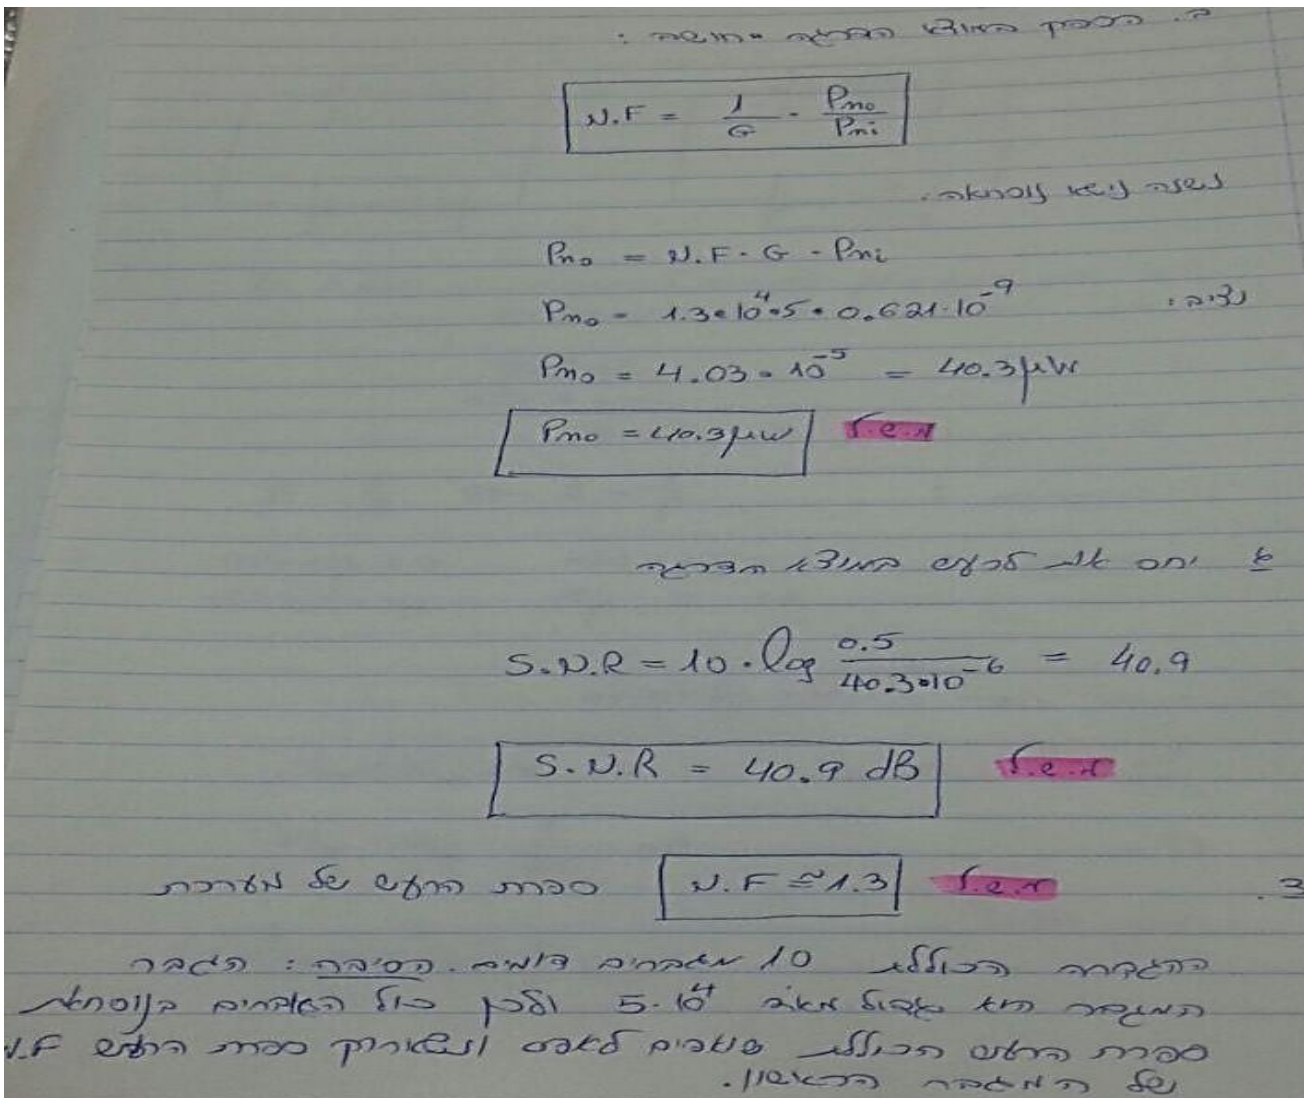 ב. הספק במוצא הדרגה :
N.F = 1/G · Pno/Pni
נשנה נושא נוסחאה.
Pno = N.F · G · Pni
נציב: Pno = 1.3•10^4•5•0.621·10^-9
Pno = 4.03•10^-5 = 40.3μW
Pno = 40.3μW מ.ש.ל
יחס אות לרעש במוצא הדרגה
S.N.R = 10·log 0.5/40.3•10^-6 = 40.9
S.N.R = 40.9 dB מ.ש.ל
מ.ש.ל N.F ≅ 1.3 ספרת הרעש של מערכת
ההגברה הכוללת 10 מגברים דומים. הסיבה: הגבר
המגבר הוא גדול מאוד 5·10^4 ולכן כול האברים בנוסחאת
ספרת הרעש הכוללת שואפים לאפס ונשאר רק ספרת הרעש N.F
של המגבר הראשון.